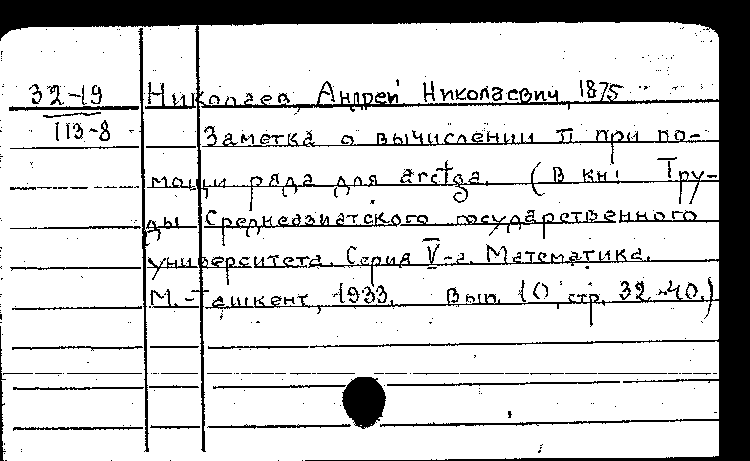 32-19 Николаев, Андрей Николаевич, 1875
113-8 Заметка о вычислении π при по-
мощи ряда для arctga. (В кн: Тру-
ды Среднеазиатского государственного
университета. Серия V-а. Математика.
М.-Ташкент, 1933. Вып. 10, стр. 32-40.)